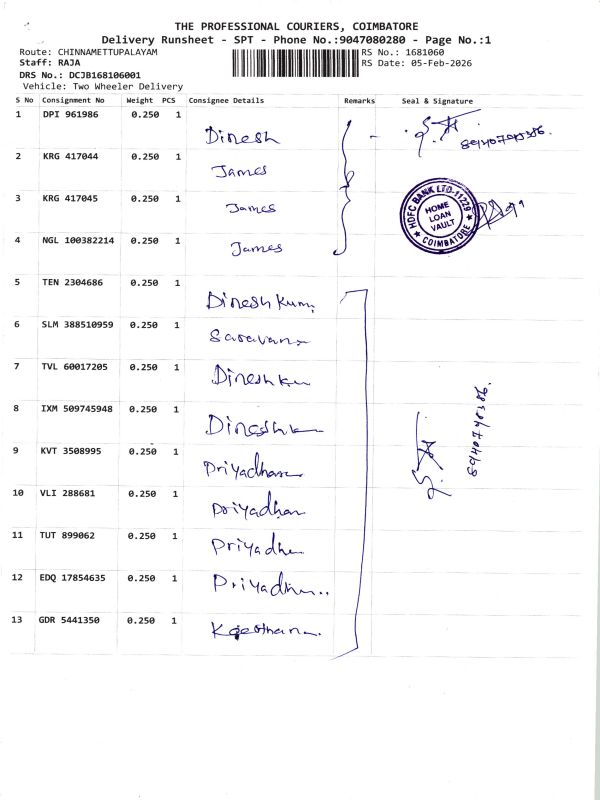 THE PROFESSIONAL COURIERS, COIMBATORE
Delivery Runsheet - SPT - Phone No.:9047080280 - Page No.:1
Route: CHINNAMETTUPALAYAM RS No.: 1681060
Staff: RAJA RS Date: 05-Feb-2026
DRS No.: DCJB168106001
Vehicle: Two Wheeler Delivery
S No Consignment No Weight PCS Consignee Details Remarks Seal & Signature
1 DPI 961986 0.250 1 Dinesh
2 KRG 417044 0.250 1 James
3 KRG 417045 0.250 1 James
HDFC BANK LTD-11229
HOME
LOAN
VAULT
COIMBATORE
4 NGL 100382214 0.250 1 James
5 TEN 2304686 0.250 1 Dinesh Kum
6 SLM 388510959 0.250 1 Saravan
7 TVL 60017205 0.250 1 Dinesh Ku
8 IXM 509745948 0.250 1 Dinesh k
9 KVT 3508995 0.250 1 Priyadhar
10 VLI 288681 0.250 1 Priyadhar
11 TUT 899062 0.250 1 Priyadh
12 EDQ 17854635 0.250 1 Priyadh
13 GDR 5441350 0.250 1